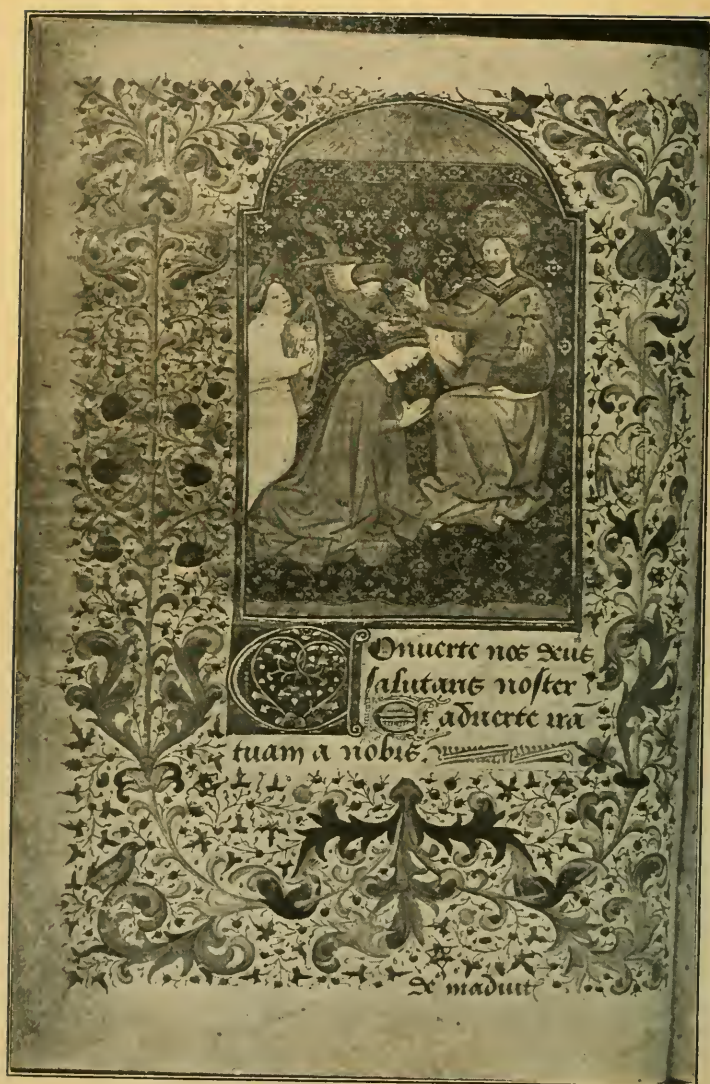 Conuerte nos deus
salutaris noster
Et aduerte irã
tuam a nobis.